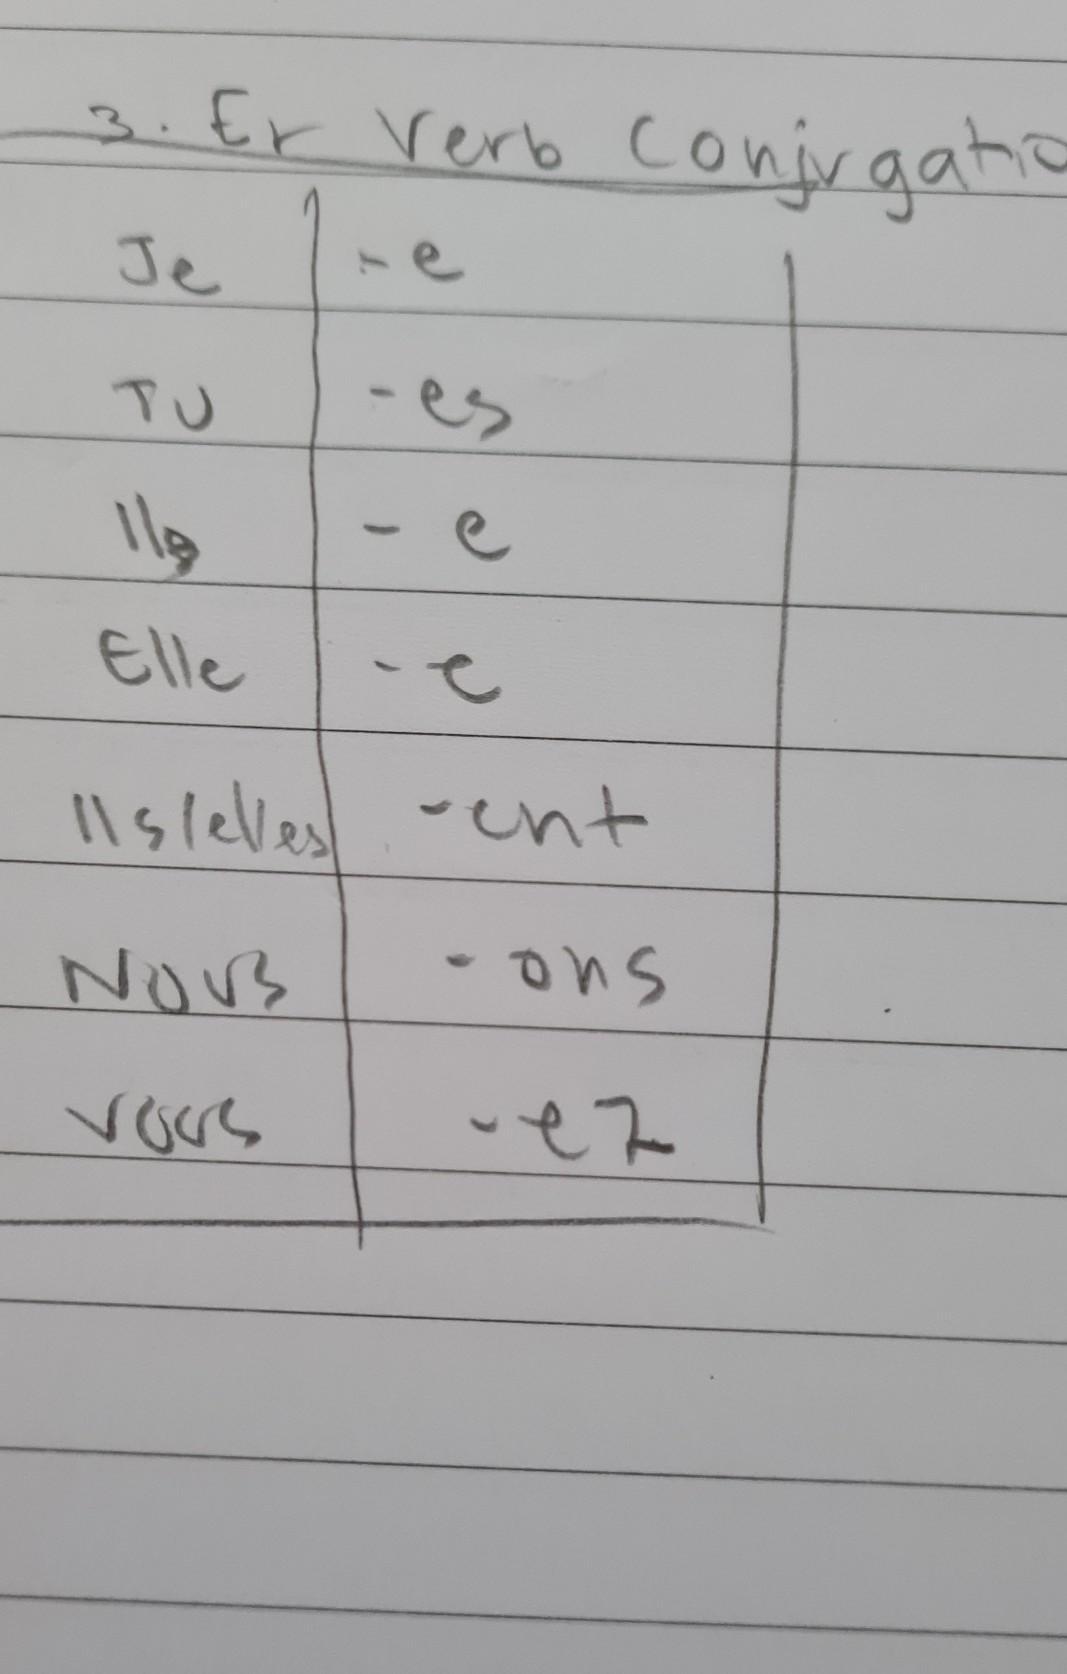 3. Er Verb Conjugatio
Je -e
TU -es
Il - e
Elle - e
Ils/elles -ent
Nous - ons
vous - ez